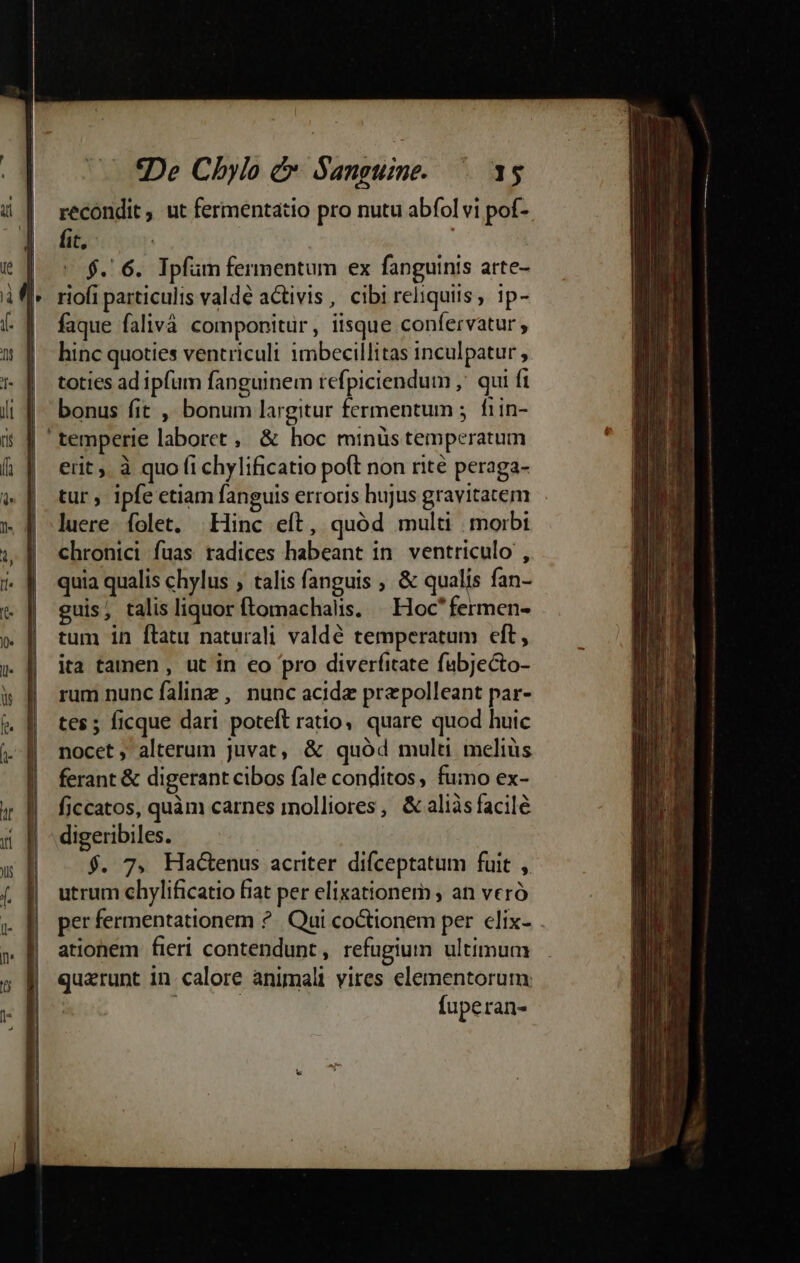 De Chylo & Sanguine. 15
recondit, ut fermentatio pro nutu abſolvi poſ-
ſit.
§. 6. Ipſum fermentum ex ſanguinis arte-
rioſi particulis valdè activis, cibi reliquiis, ip-
ſaque ſalivâ componitur, iisque conſervatur,
hinc quoties ventriculi imbecillitas inculpatur,
toties ad ipſum ſanguinem reſpiciendum, qui ſi
bonus ſit, bonum largitur fermentum; ſi in-
temperie laboret, & hoc minùs temperatum
erit, à quo ſi chylificatio poſt non ritè peraga-
tur, ipſe etiam ſanguis erroris hujus gravitatem
luere ſolet. Hinc eſt, quòd multi morbi
chronici ſuas radices habeant in ventriculo,
quia qualis chylus, talis ſanguis, & qualis ſan-
guis, talis liquor ſtomachalis. Hoc fermen-
tum in ſtatu naturali valdè temperatum eſt,
ita tamen, ut in eo pro diverſitate ſubjecto-
rum nunc ſalinæ, nunc acidæ præpolleant par-
tes; ſicque dari poteſt ratio, quare quod huic
nocet, alterum juvat, & quòd multi meliùs
ferant & digerant cibos ſale conditos, fumo ex-
ſiccatos, quàm carnes molliores, & aliàs facilè
digeribiles.
§. 7. Hactenus acriter diſceptatum fuit,
utrum chylificatio fiat per elixationem, an verò
per fermentationem? Qui coctionem per elix-
ationem fieri contendunt, refugium ultimum
quærunt in calore animali vires elementorum
ſuperan-